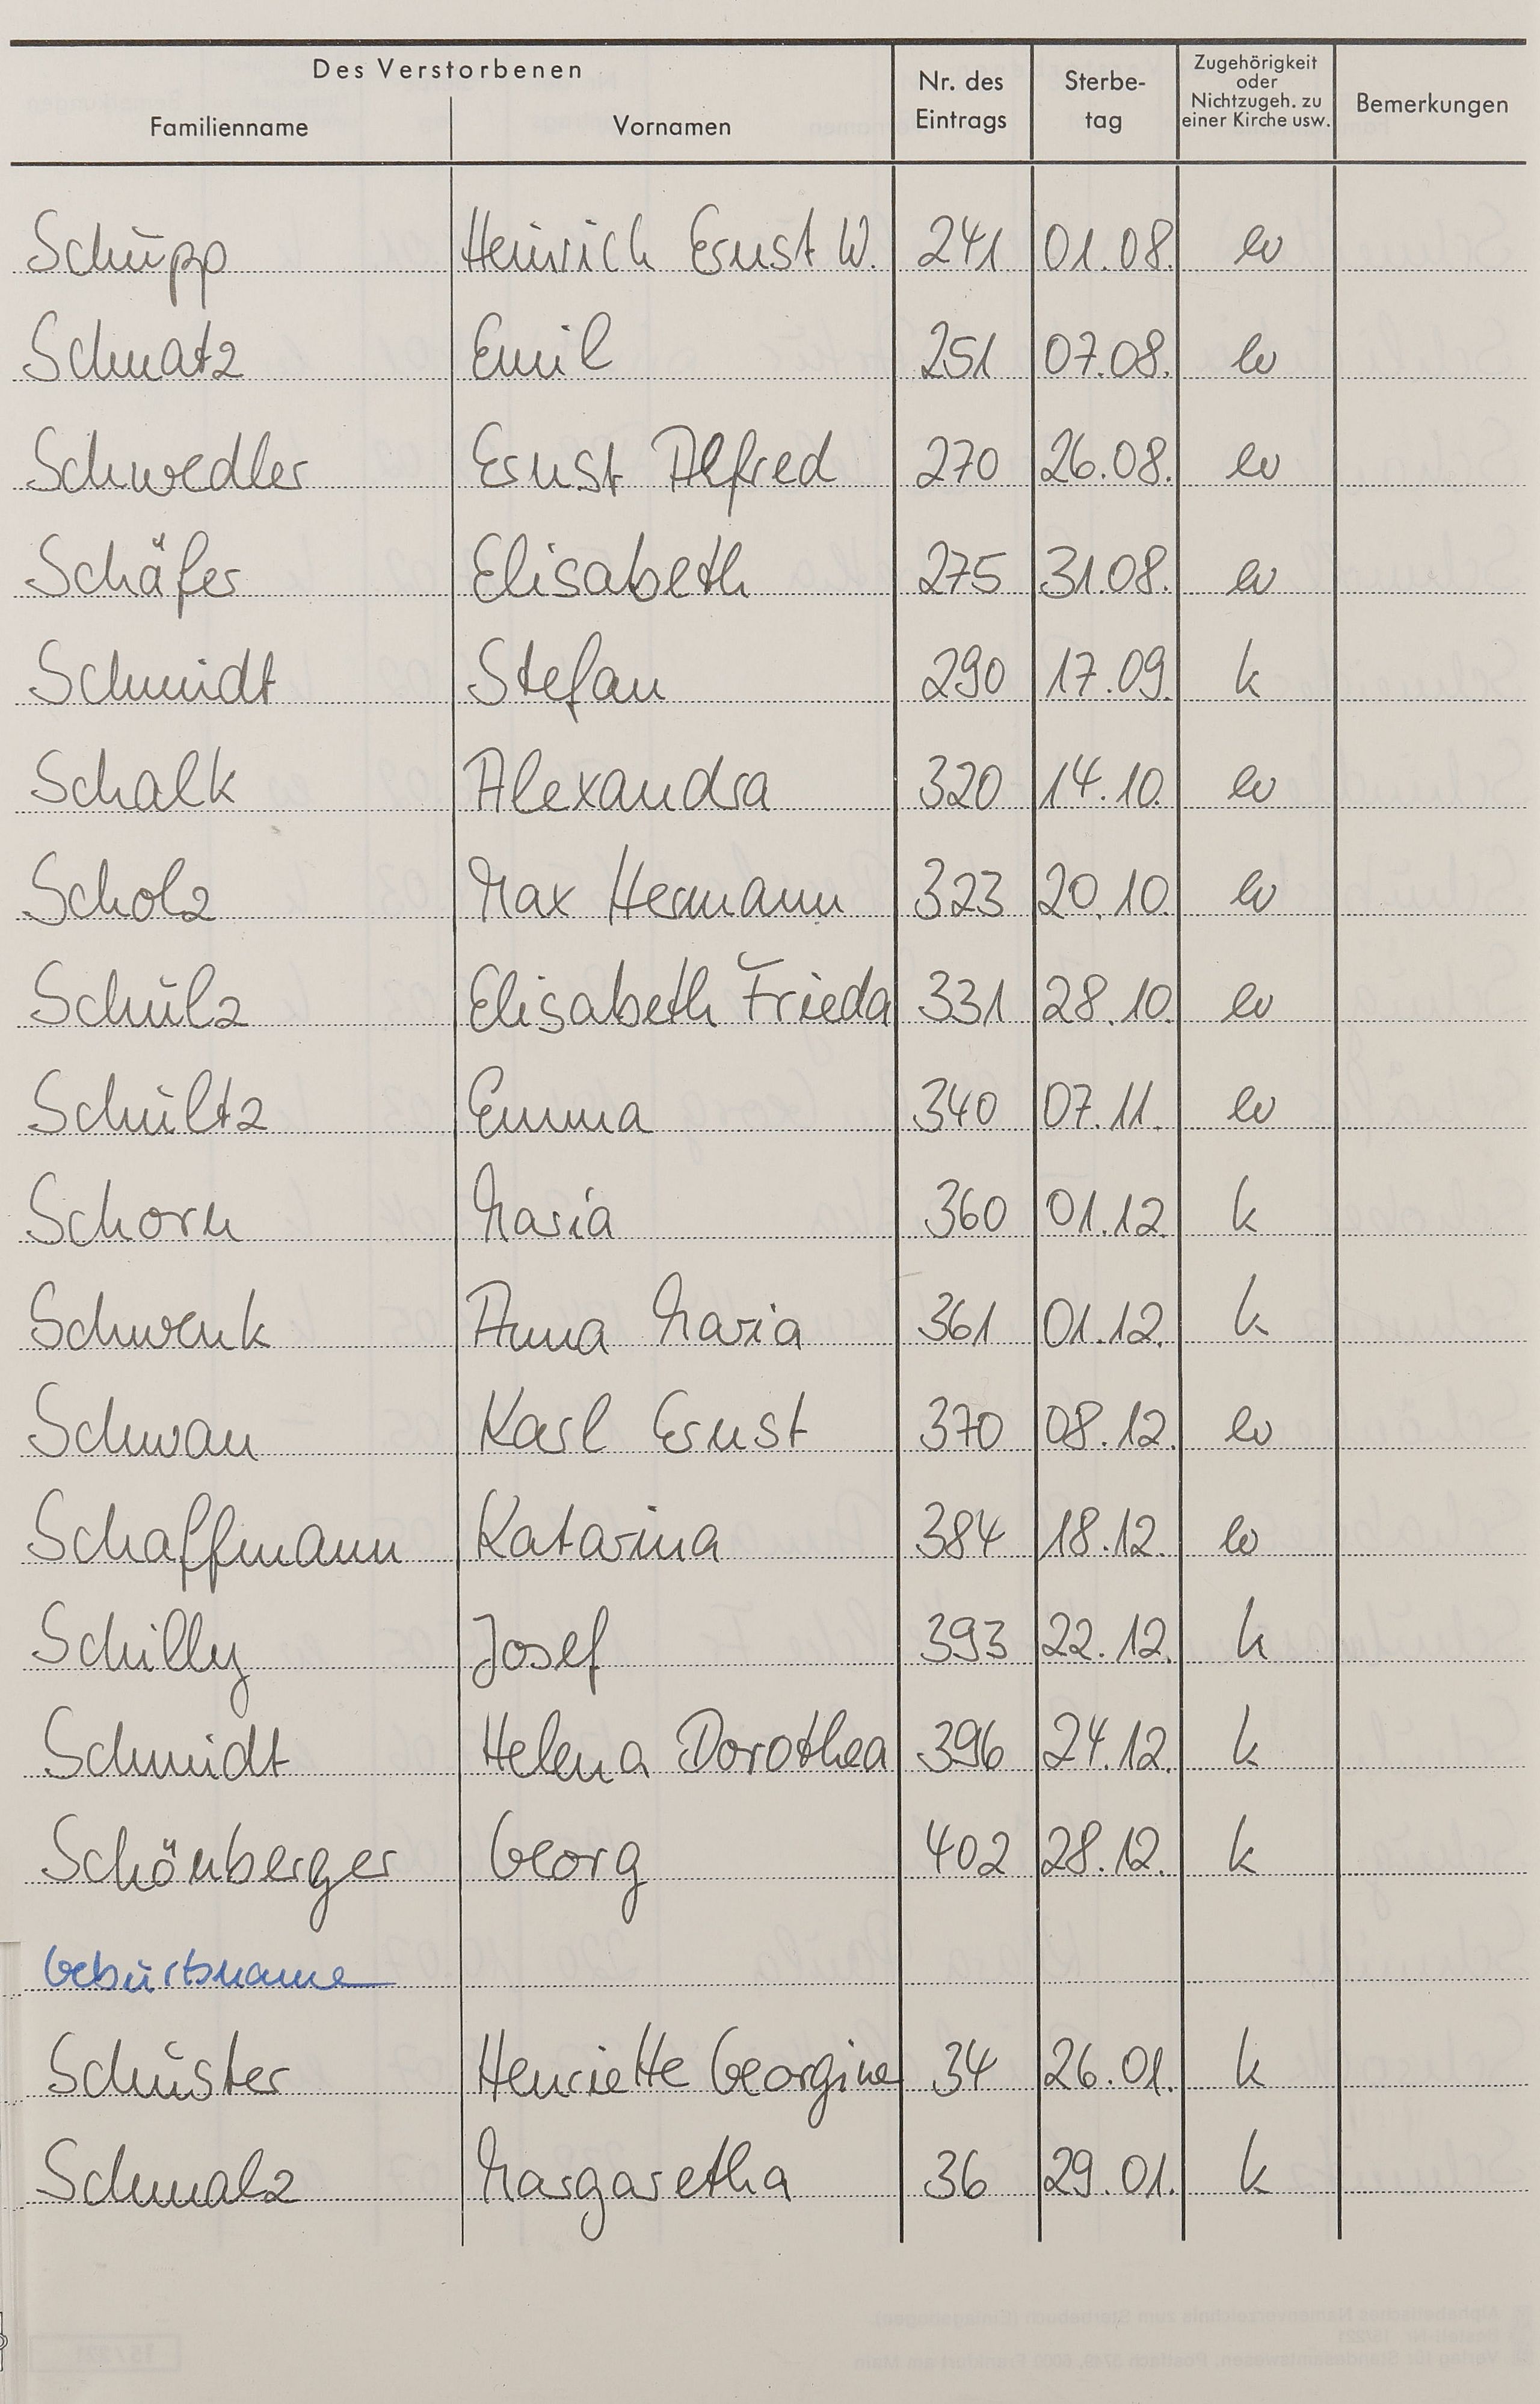 Des Verstorbenen
Familienname Vornamen Nr. des Eintrags Sterbe-tag Zugehörigkeit oder Nichtzugeh. zu einer Kirche usw. Bemerkungen
Schupp Heinrich Ernst W. 241 01.08. ev
Schmatz Emil 251 07.08. ev
Schwedler Ernst Alfred 270 26.08. ev
Schäfer Elisabeth 275 31.08. ev
Schmidt Stefan 290 17.09. k
Schalk Alexandra 320 14.10. ev
Scholz Max Hermann 323 20.10. ev
Schulz Elisabeth Frieda 331 28.10. ev
Schultz Emma 340 07.11. ev
Schorn Maria 360 01.12. k
Schwenk Anna Maria 361 01.12. k
Schwan Karl Ernst 370 08.12. ev
Schaffmann Katarina 384 18.12. ev
Schilly Josef 393 22.12. k
Schmidt Helena Dorothea 396 24.12. k
Schönberger Georg 402 28.12. k
Geburtsname
Schuster Henriette Georgine 34 26.01. k
Schmalz Margaretha 36 29.01. k